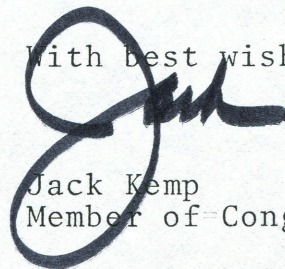 With best wish
Jack
Jack Kemp
Member of Cong